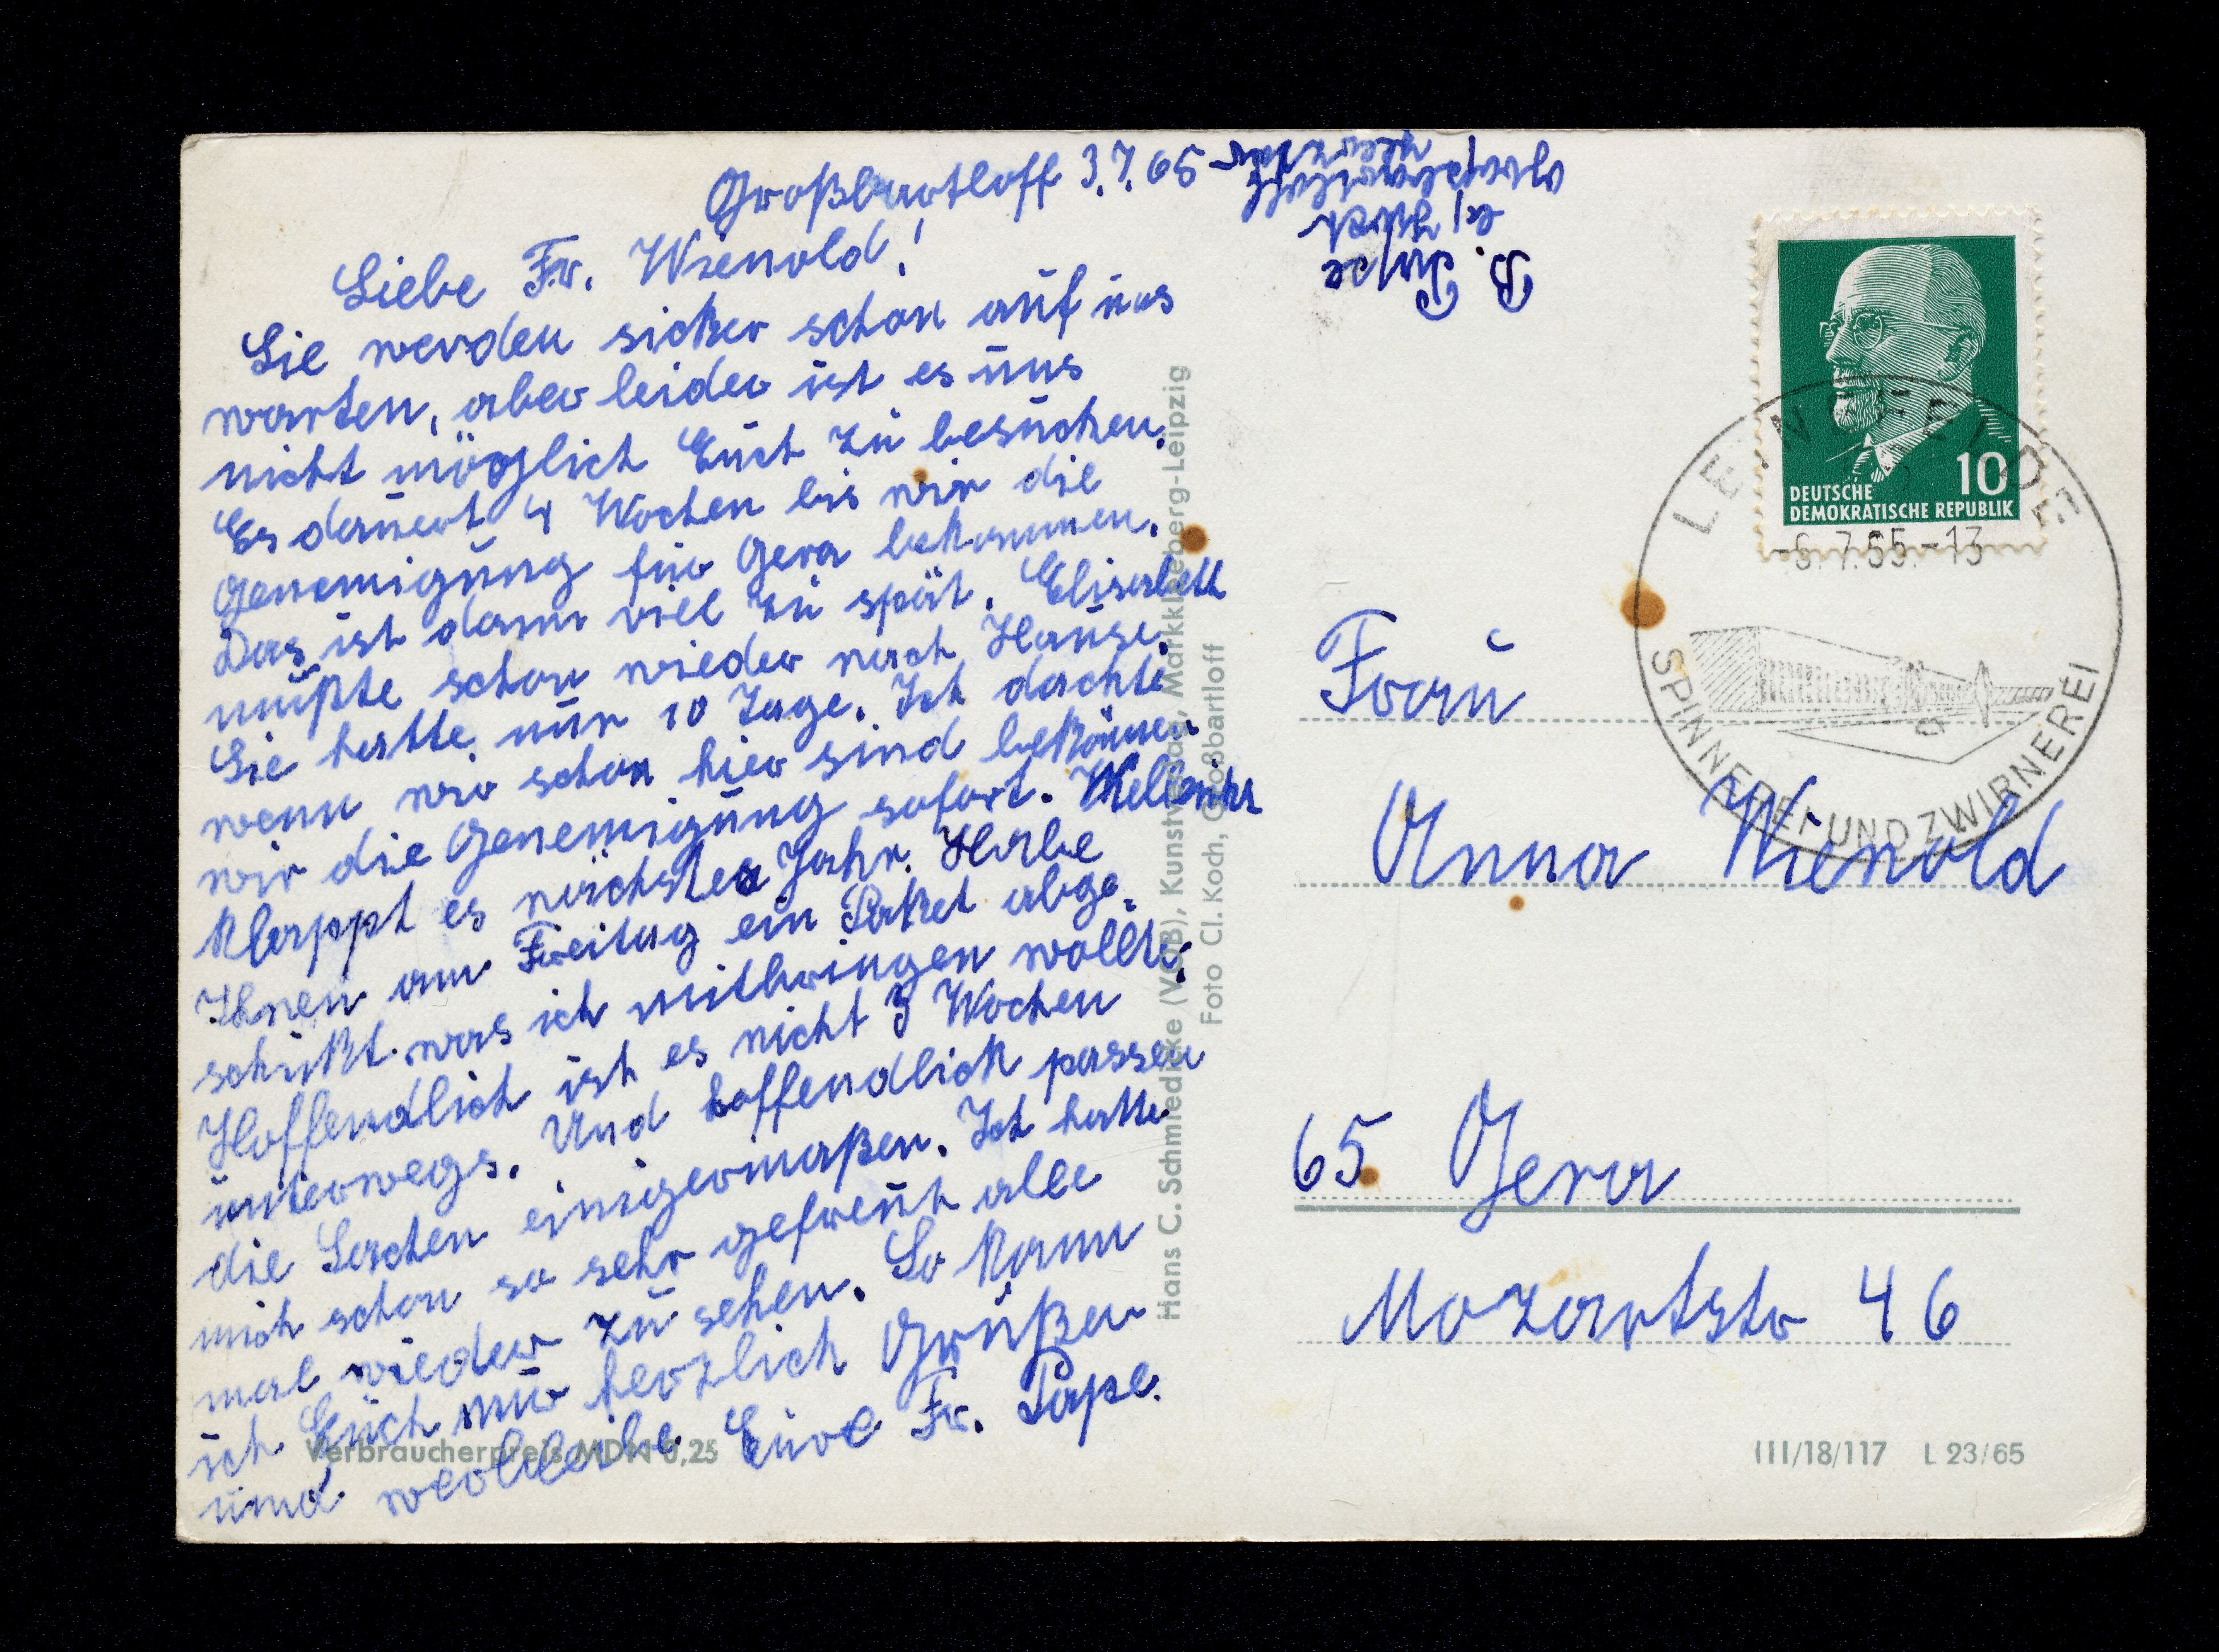 Großbartloff 3.7.65
Liebe Fr. Wienold!
Sie werden sicher schon auf uns
warten, aber leider ist es uns
nicht möglich Euch zu besuchen.
Es dauert 4 Wochen bis wir die
Genemigung für Gera bekommen.
Das ist dann viel zu spät. Elisabett
mußte schon wieder nach Hause.
Sie hatte nur 10 Tage. Ich dachte
wenn wir schon hier sind bekämen
wir die Genemigung sofort.
klappt es nächstes Jahr. Habe
Ihnen am Freitag ein Paket abge-
schikt was ich mitbringen wollte.
Hoffendlich ist es nicht 3 Wochen
unterwegs. Und hoffendlich passen
die Sachen einigermaßen. Ich hatte
mich schon so sehr gefreut alle
mal wieder zu sehen. So kann
ich Euch nur herzlich Grüßen
und verbleibe Eure Fr. Pape.
B. Pape
bei
Verbraucherpreis MDN 0,25
Hans C. Schmiedicke (VOB), Kunstverlag, Markkleeberg-Leipzig
Foto Cl. Koch, Großbartloff
10
DEUTSCHE
DEMOKRATISCHE REPUBLIK
LEINEFELDE
-6.7.65.-13
SPINNEREI UND ZWIRNEREI
Frau
Anna Wienold
65 Gera
Mozartstr 46
III/18/117 L 23/65